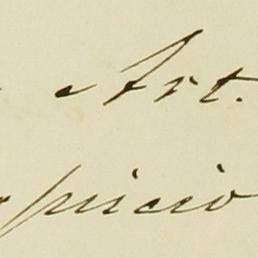 Art.
spicio